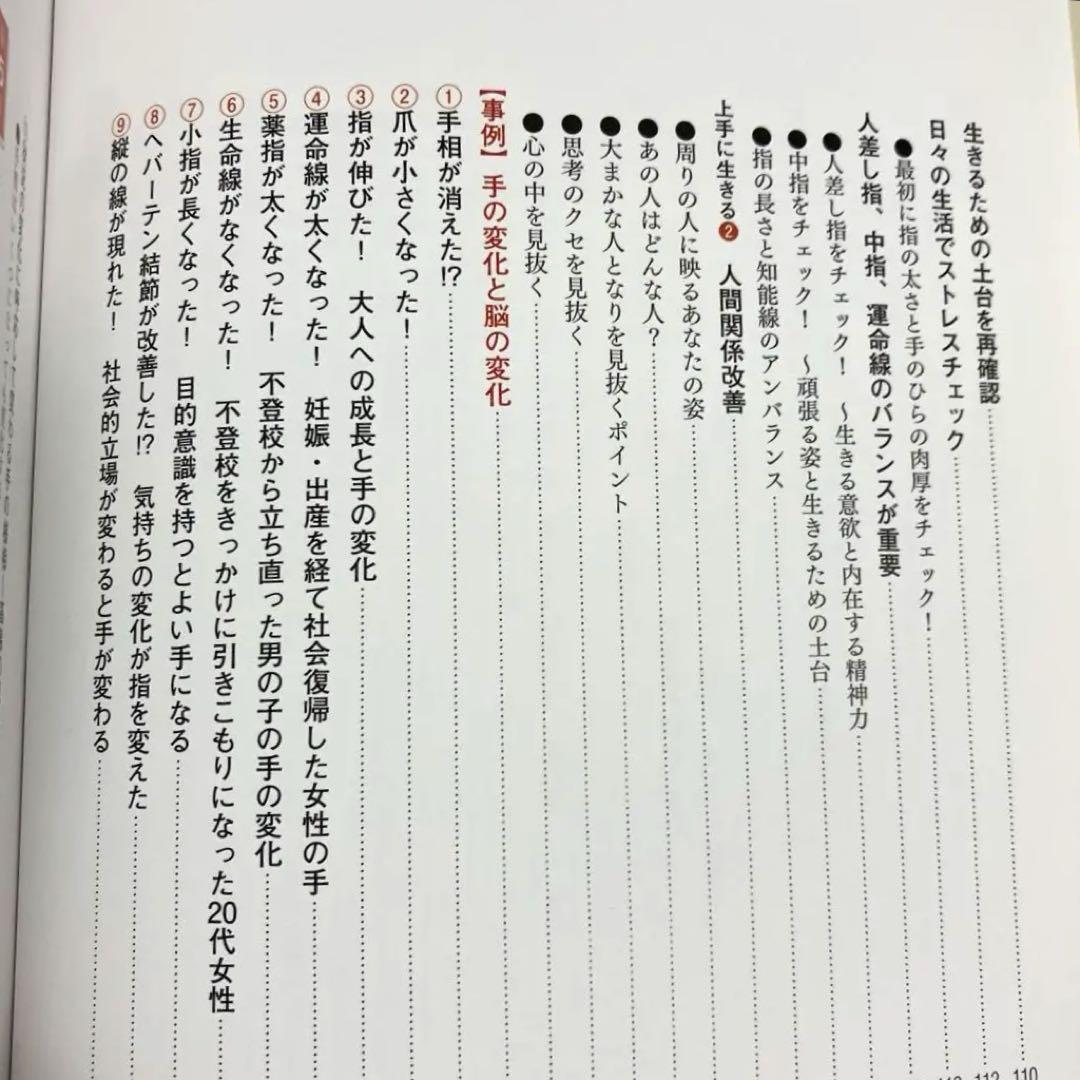 生きるための土台を再確認
日々の生活でストレスチェック
●最初に指の太さと手のひらの肉厚をチェック！
人差し指、中指、運命線のバランスが重要
●人差し指をチェック！　～生きる意欲と内在する精神力
●中指をチェック！　～頑張る姿と生きるための土台
●指の長さと知能線のアンバランス
上手に生きる❷　人間関係改善
●周りの人に映るあなたの姿
●あの人はどんな人？
●大まかな人となりを見抜くポイント
●思考のクセを見抜く
●心の中を見抜く
【事例】手の変化と脳の変化
①手相が消えた!?
②爪が小さくなった！
③指が伸びた！　大人への成長と手の変化
④運命線が太くなった！　妊娠・出産を経て社会復帰した女性の手
⑤薬指が太くなった！　不登校から立ち直った男の子の手の変化
⑥生命線がなくなった！　不登校をきっかけに引きこもりになった20代女性
⑦小指が長くなった！　目的意識を持つとよい手になる
⑧ヘバーデン結節が改善した!?　気持ちの変化が指を変えた
⑨縦の線が現れた！　社会的立場が変わると手が変わる
110
112